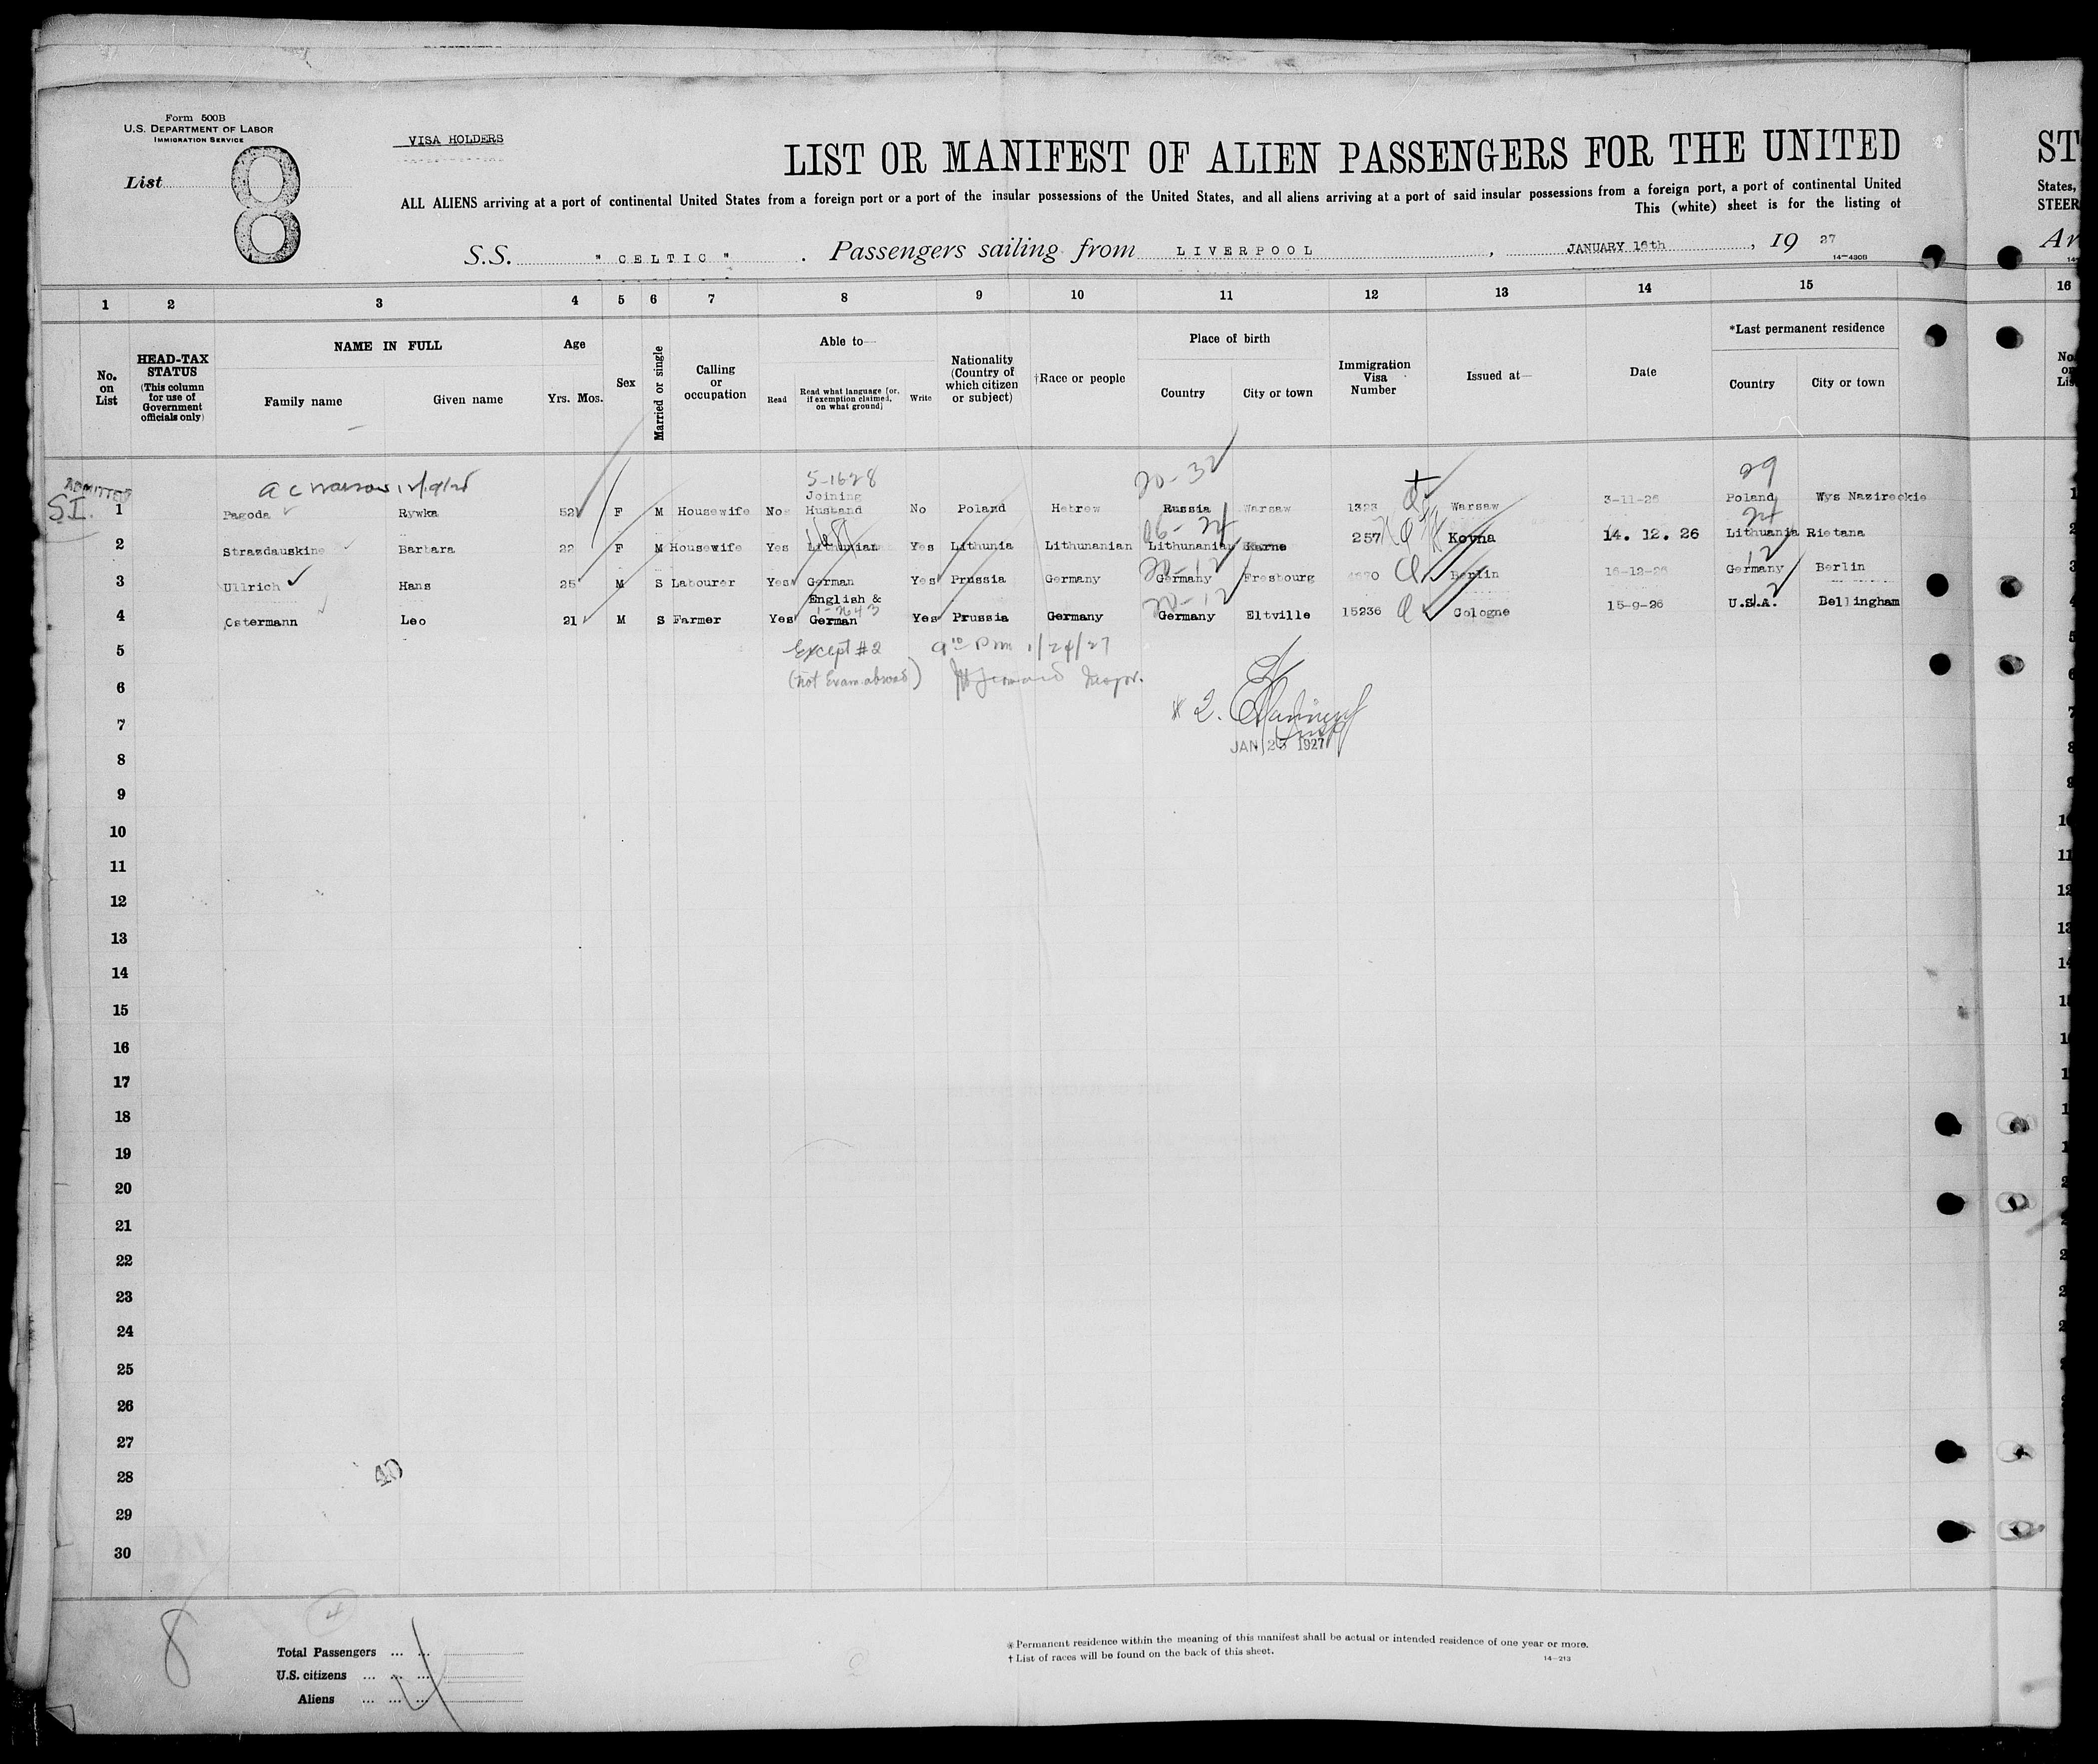 Form 500B
U.S. DEPARTMENT OF LABOR
IMMIGRATION SERVICE
VISA HOLDERS
List 8
LIST OR MANIFEST OF ALIEN PASSENGERS FOR THE UNITED ST
ALL ALIENS arriving at a port of continental United States from a foreign port or a port of the insular possessions of the United States, and all aliens arriving at a port of said insular possessions from a foreign port, a port of continental United States,
This (white) sheet is for the listing of STEER
S.S. " CELTIC " . Passengers sailing from LIVERPOOL , JANUARY 16th , 19 27
14—430B
1 2 3 4 5 6 7 8 9 10 11 12 13 14 15 16
No. on List
HEAD-TAX STATUS
(This column for use of Government officials only)
NAME IN FULL
Family name Given name
Age
Yrs. Mos.
Sex
Married or single
Calling or occupation
Able to—
Read Read what language [or, if exemption claimed, on what ground] Write
Nationality (Country of which citizen or subject)
†Race or people
Place of birth
Country City or town
Immigration Visa Number
Issued at—
Date
*Last permanent residence
Country City or town
ADMITTED
SI.
5-1628
20-32
29
1 Pagoda Rywka 52 F M Housewife No Joining Husband No Poland Hebrew Russia Warsaw 1323 Warsaw 3-11-26 Poland Wys Nazireckie
2 Strazdauskine Barbara 22 F M Housewife Yes Lithunian Yes Lithunia Lithunanian Lithunanian Karne 257 Kovna 14. 12. 26 Lithuania Rietana
20-12
12
3 Ullrich Hans 25 M S Labourer Yes German Yes Prussia Germany Germany Fresbourg Berlin 16-12-26 Germany Berlin
20-12
2
4 Ostermann Leo 21 M S Farmer Yes English & German Yes Prussia Germany Germany Eltville 15236 Cologne 15-9-26 U.S.A. Bellingham
5 Except #2 9 10 Pm 1/24/27
6 (not Exam abroad)
7 # 2.
JAN 25 1927
8
9
10
11
12
13
14
15
16
17
18
19
20
21
22
23
24
25
26
27
28
40
29
30
8
4
Total Passengers ... ...
U.S. citizens ... ... ...
Aliens ... ... ...
4
* Permanent residence within the meaning of this manifest shall be actual or intended residence of one year or more.
† List of races will be found on the back of this sheet.
14—213